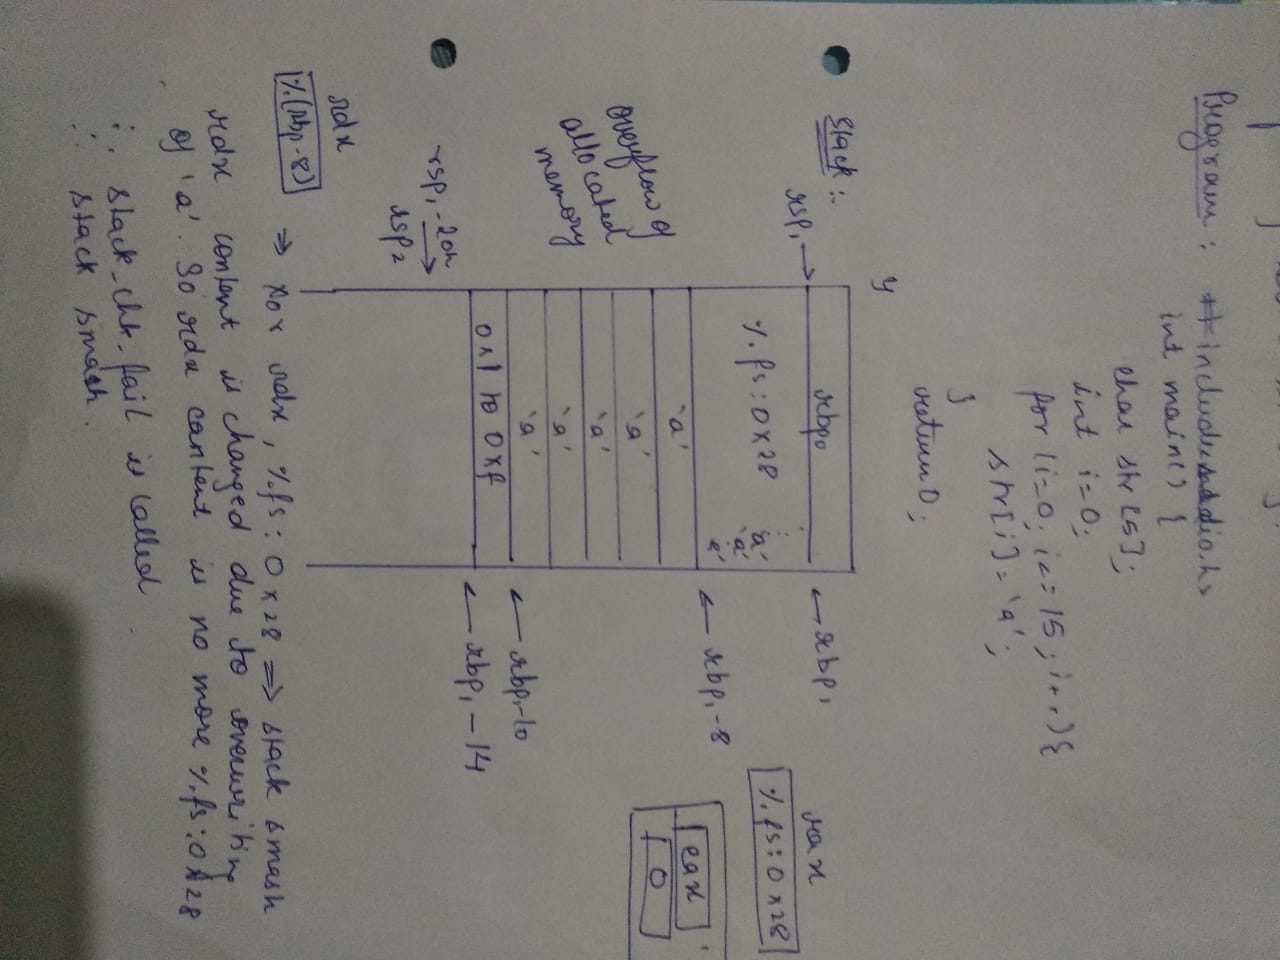 Program : #include<stdio.h>
int main() {
char str[5];
int i=0;
for (i=0; i<=15; i++){
str[i]='a';
}
return 0;
}
Stack :-
rbp0
rsp1 →
← rbp1
rax
%fs:0x28
%fs:0x28
'a'
'a'
'a'
← rbp1-8
eax
0
'a'
'a'
'a'
'a'
'a'
overflow of
allocated
memory
← rbp1-10
0x1 to 0xf
← rbp1-14
rsp1-20h
→
rsp2
rdx
%(rbp-8)
⇒ xor rdx, %fs:0x28 ⇒ stack smash
rdx content is changed due to overwriting
of 'a'. So rdx content is no more %fs:0x28
∴ stack_chk_fail is called
∴ stack smash.